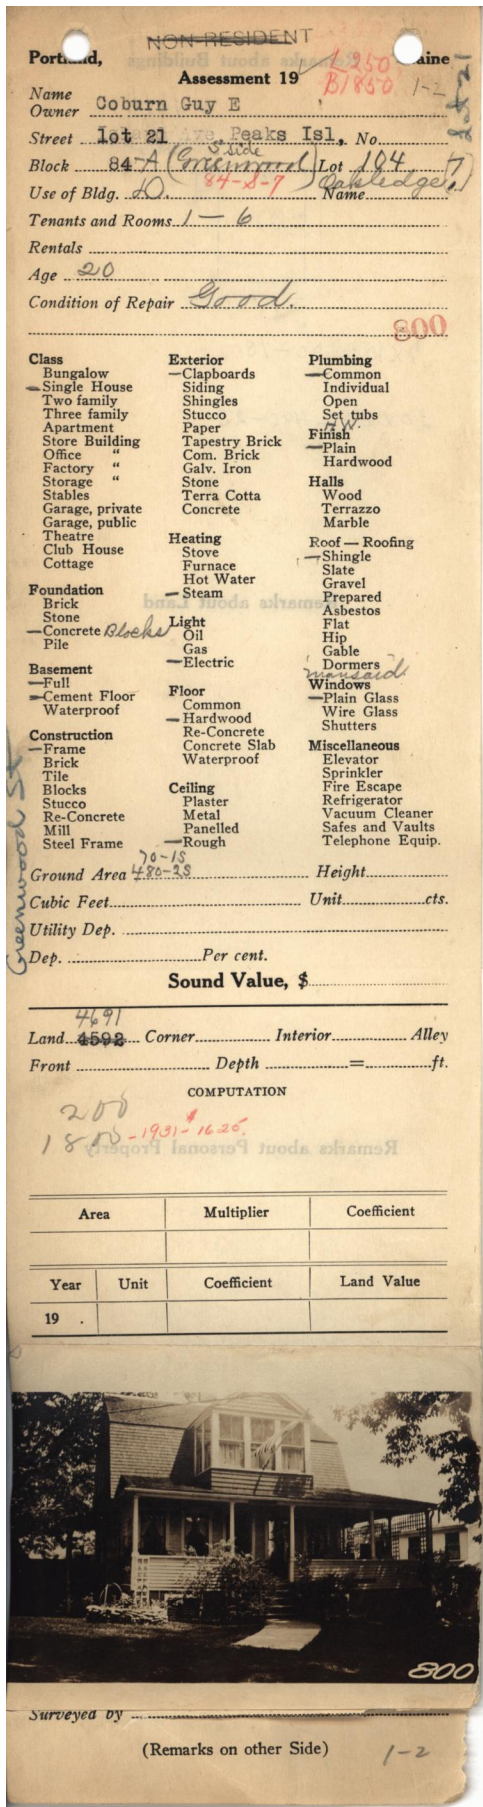 NON-RESIDENT
Portland, Maine
L 250
B1850
1-2
Lot 21
Assessment 19
Name
Owner Coburn Guy E
Street lot 21 Ave, Peaks Isl, No.
S side
Block 84-A (Greenwood) Lot 104
84-S-7
Oakledge
Use of Bldg. D. Name
Tenants and Rooms 1 — 6
Rentals
Age 20
Condition of Repair Good.
800
Class
Bungalow
Single House
Two family
Three family
Apartment
Store Building
Office "
Factory "
Storage "
Stables
Garage, private
Garage, public
Theatre
Club House
Cottage
Foundation
Brick
Stone
Concrete Blocks
Pile
Basement
Full
Cement Floor
Waterproof
Construction
Frame
Brick
Tile
Blocks
Stucco
Re-Concrete
Mill
Steel Frame
Exterior
Clapboards
Siding
Shingles
Stucco
Paper
Tapestry Brick
Com. Brick
Galv. Iron
Stone
Terra Cotta
Concrete
Heating
Stove
Furnace
Hot Water
Steam
Light
Oil
Gas
Electric
Floor
Common
Hardwood
Re-Concrete
Concrete Slab
Waterproof
Ceiling
Plaster
Metal
Panelled
Rough
Plumbing
Common
Individual
Open
Set tubs
H.W.
Finish
Plain
Hardwood
Halls
Wood
Terrazzo
Marble
Roof — Roofing
Shingle
Slate
Gravel
Prepared
Asbestos
Flat
Hip
Gable
Dormers
mansard
Windows
Plain Glass
Wire Glass
Shutters
Miscellaneous
Elevator
Sprinkler
Fire Escape
Refrigerator
Vacuum Cleaner
Safes and Vaults
Telephone Equip.
Greenwood St
70-1S
Ground Area 480-2S Height
Cubic Feet Unit cts.
Utility Dep.
Dep. Per cent.
Sound Value, $
4691
Land 4592 Corner Interior Alley
Front Depth = ft.
COMPUTATION
200
1800 -1931- $1625.
Area Multiplier Coefficient
Year Unit Coefficient Land Value
19 .
800
Surveyed by
(Remarks on other Side)
1-2